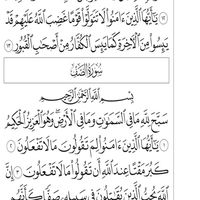 ١٢ يَٰٓأَيُّهَا ٱلَّذِينَ ءَامَنُوا۟ لَا تَتَوَلَّوْا۟ قَوْمًا غَضِبَ ٱللَّهُ عَلَيْهِمْ قَدْ
يَئِسُوا۟ مِنَ ٱلْءَاخِرَةِ كَمَا يَئِسَ ٱلْكُفَّارُ مِنْ أَصْحَٰبِ ٱلْقُبُورِ ١٣
سُورَةُ الصَّفِّ
بِسْمِ ٱللَّهِ ٱلرَّحْمَٰنِ ٱلرَّحِيمِ
سَبَّحَ لِلَّهِ مَا فِى ٱلسَّمَٰوَٰتِ وَمَا فِى ٱلْأَرْضِ وَهُوَ ٱلْعَزِيزُ ٱلْحَكِيمُ
١ يَٰٓأَيُّهَا ٱلَّذِينَ ءَامَنُوا۟ لِمَ تَقُولُونَ مَا لَا تَفْعَلُونَ ٢
كَبُرَ مَقْتًا عِندَ ٱللَّهِ أَن تَقُولُوا۟ مَا لَا تَفْعَلُونَ ٣ إِنَّ
ٱللَّهَ يُحِبُّ ٱلَّذِينَ يُقَٰتِلُونَ فِى سَبِيلِهِۦ صَفًّا كَأَنَّهُم